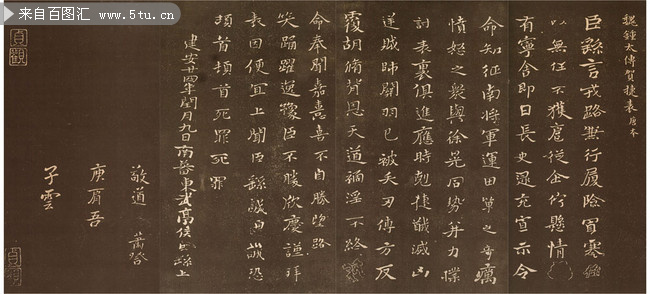 来自百图汇 www.5tu.cn
魏鍾太傅賀捷表 唐本
臣繇言戎路兼行履險冒寒繇
以無任不獲扈從企佇懸情
有寧舍即日長史逯充宣示令
命知征南將軍運田單之奇厲
憤怒之衆與徐晃同勢并力撲
討表裏俱進應時剋捷馘滅凶
逆賊帥關羽已被矢刃傅方反
覆胡脩背恩天道禍淫不終
命奉聞嘉憙喜不自勝望路
笑踊躍逸豫臣不勝欣慶謹拜
表因便宜上聞臣繇誠惶誠恐
頓首頓首死罪死罪
建安廿四年閏月九日南蕃東武亭侯臣繇上
敬道
庾肩吾
子雲
貞觀